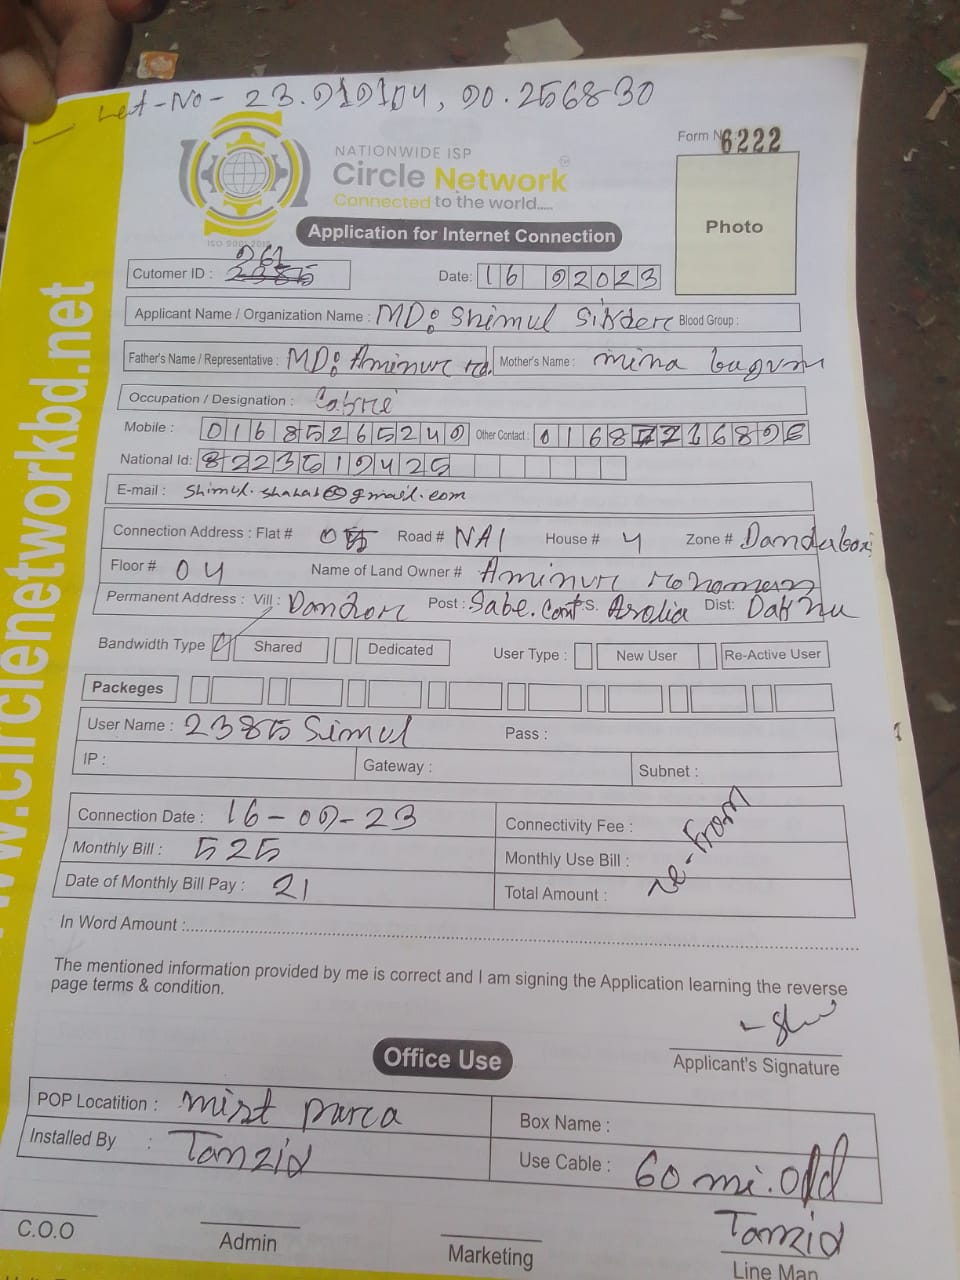 Let-No- 23.919104, 90.256830
Form No 6222
NATIONWIDE ISP
Circle Network
Connected to the world.....
ISO 9001:2015
Photo
Application for Internet Connection
Cutomer ID : 2385 Date: 16 92023
Applicant Name / Organization Name : MD: Shimul Sikder Blood Group :
Father's Name / Representative : MD: Aminur rd. Mother's Name : mina begum
Occupation / Designation :
Mobile : 01685265249 Other Contact : 0168
National Id: 8223519425
E-mail : Shimul. @gmail.com
Connection Address : Flat # 05 Road # NAI House # 4 Zone # Dandabori
Floor # 04 Name of Land Owner # Aminur
Permanent Address : Vill : Post : Sabe. Cant P.S. Dist:
Bandwidth Type Shared Dedicated User Type : New User Re-Active User
Packeges
User Name : 2385 Simul Pass :
IP : Gateway : Subnet :
Connection Date : 16-09-23 Connectivity Fee :
Monthly Bill : 525 Monthly Use Bill :
Date of Monthly Bill Pay : 21 Total Amount :
re-From
In Word Amount :
The mentioned information provided by me is correct and I am signing the Application learning the reverse
page terms & condition.
Applicant's Signature
Office Use
POP Locatition : mist parca Box Name :
Installed By : Tanzid Use Cable : 60 mi. old
Tanzid
C.O.O Admin Marketing Line Man
www.circlenetworkbd.net